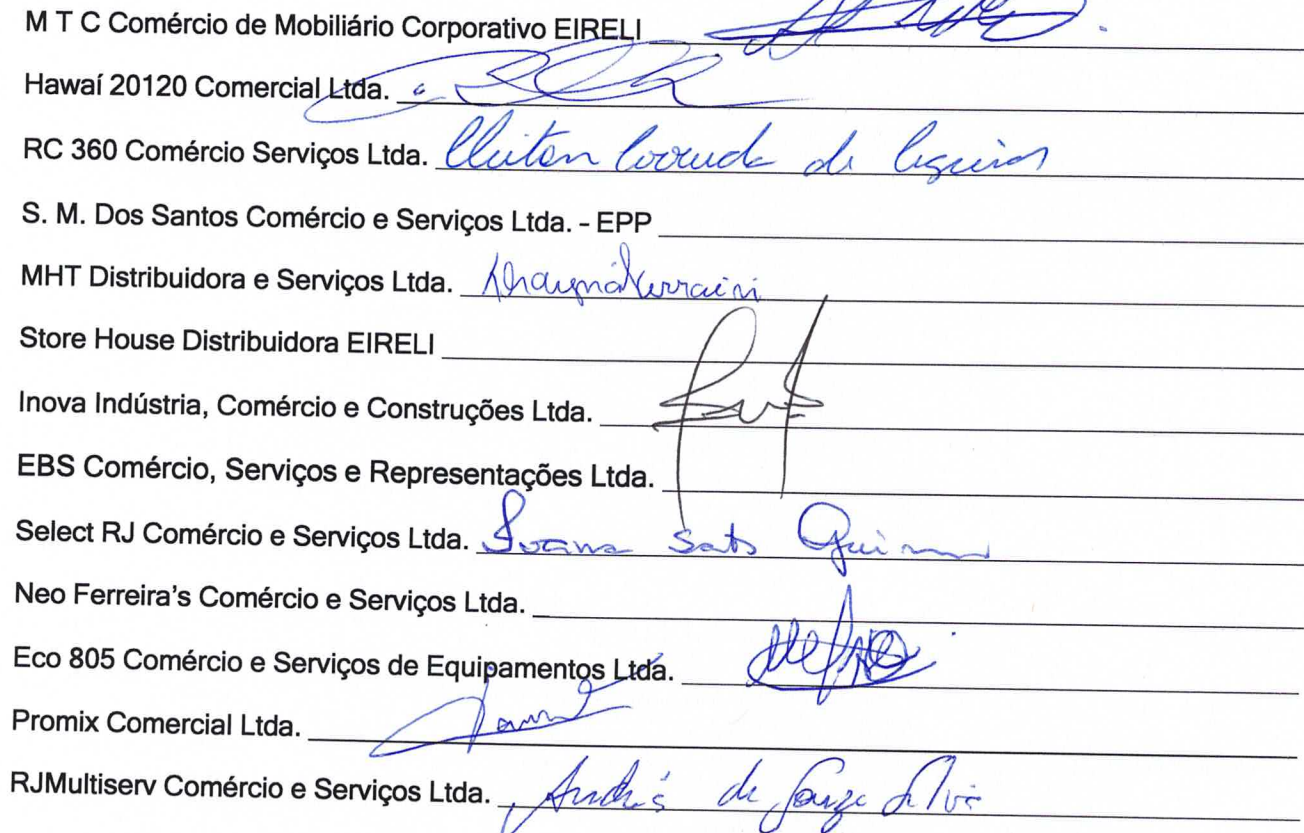 M T C Comércio de Mobiliário Corporativo EIRELI
Hawaí 20120 Comercial Ltda.
RC 360 Comércio Serviços Ltda. de
S. M. Dos Santos Comércio e Serviços Ltda. - EPP
MHT Distribuidora e Serviços Ltda.
Store House Distribuidora EIRELI
Inova Indústria, Comércio e Construções Ltda.
EBS Comércio, Serviços e Representações Ltda.
Select RJ Comércio e Serviços Ltda.
Neo Ferreira's Comércio e Serviços Ltda.
Eco 805 Comércio e Serviços de Equipamentos Ltda.
Promix Comercial Ltda.
RJMultiserv Comércio e Serviços Ltda. de Silva